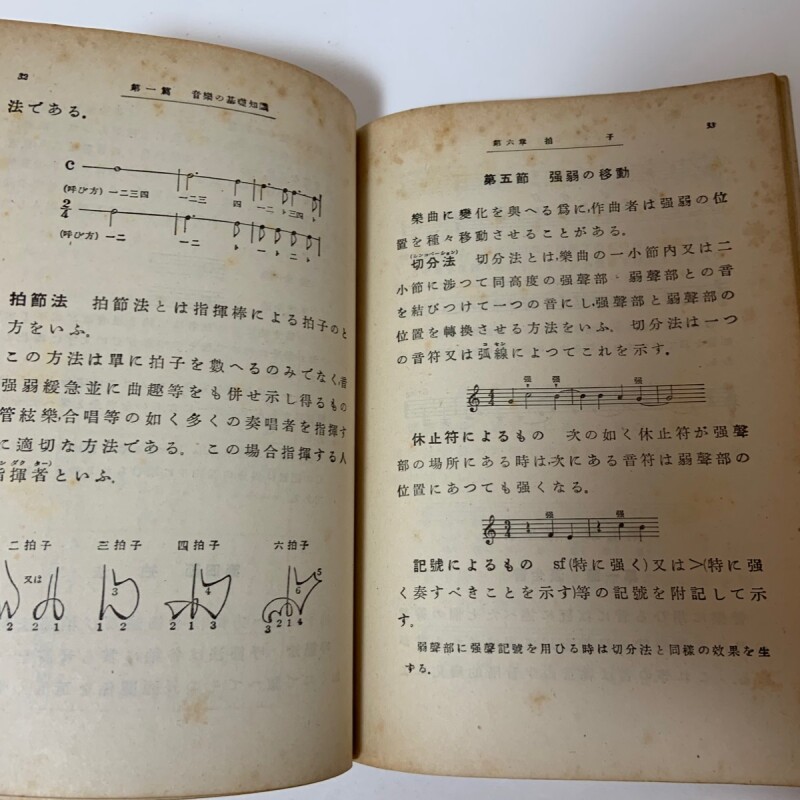 32
第一篇 音樂の基礎知識
法である。
C
(呼び方) 一二三四 一二三 四 一二 ト三四 ト
2/4
(呼び方) 一二 一二 ト 一 ト 二 ト
拍節法 拍節法とは指揮棒による拍子のと
方をいふ。
この方法は單に拍子を數へるのみでなく,音
强弱緩急並に曲趣等をも併せ示し得るもの
管絃樂,合唱等の如く多くの奏唱者を指揮す
に適切な方法である。 この場合指揮する人
指揮者といふ。
二拍子 三拍子 四拍子 六拍子
又は
3 4 6 5
2 2 1 1 2 2 1 3 3 2 1 4
33
第六章 拍 子
第五節 强弱の移動
樂曲に變化を與へる爲に,作曲者は强弱の位
置を種々移動させることがある。
切分法 切分法とは,樂曲の一小節内又は二
小節に涉つて同高度の强聲部・弱聲部との音
を結びつけて一つの音にし,强聲部と弱聲部の
位置を轉換させる方法をいふ。 切分法は一つ
の音符又は弧線によつてこれを示す。
强 强
休止符によるもの 次の如く休止符が强聲
部の場所にある時は,次にある音符は弱聲部の
位置にあつても强くなる。
3/4 强 强
記號によるもの sf(特に强く)又は>(特に强
く奏すべきことを示す)等の記號を附記して示
す。
弱聲部に强聲記號を用ひる時は切分法と同樣の效果を生
ずる。